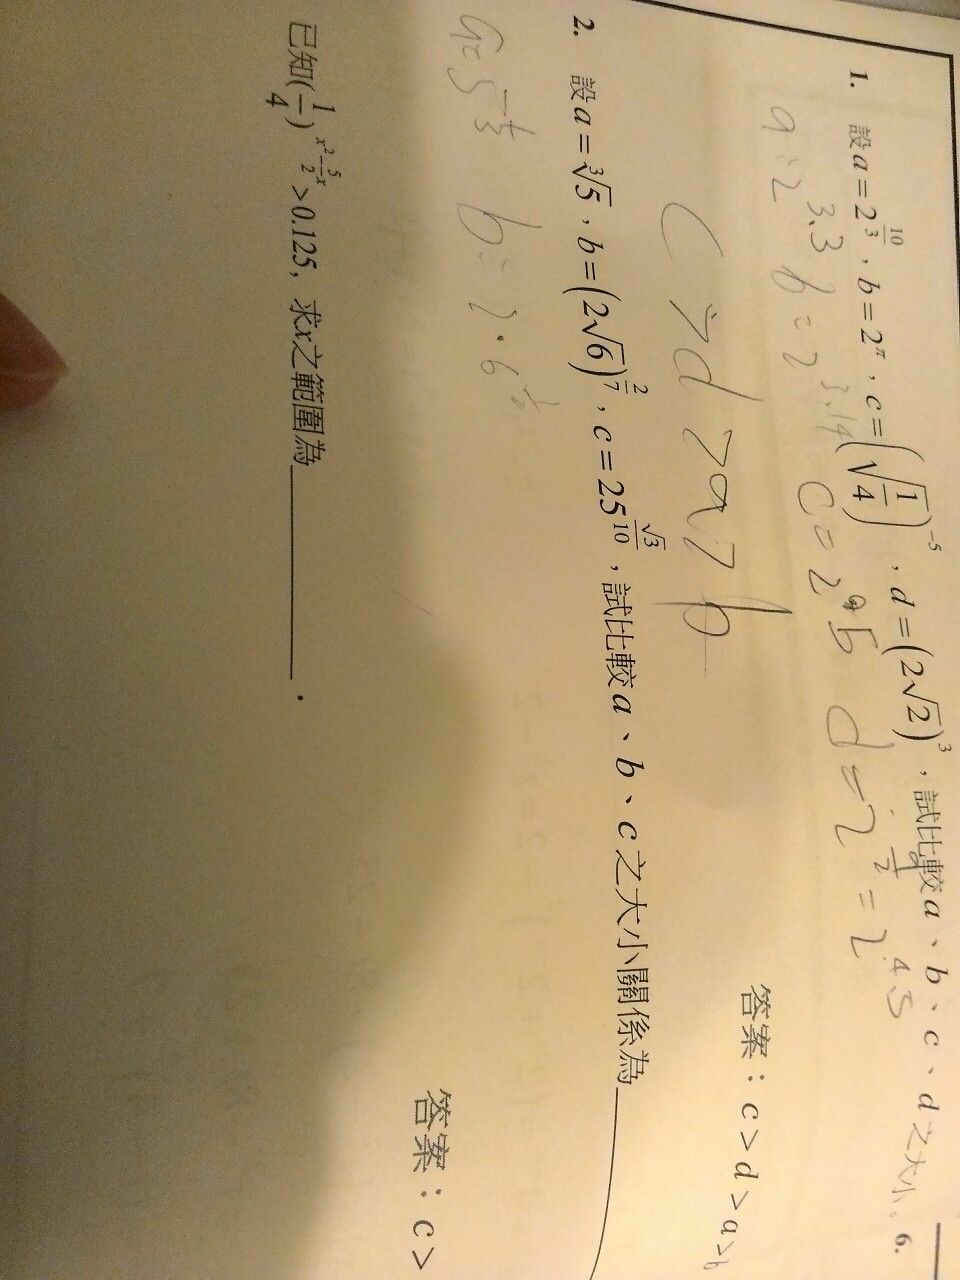 1. 設a=2^{10/3}，b=2^π，c=(√(1/4))^{-5}，d=(2√2)^3，試比較a、b、c、d之大小。 6.
a=2^{3.3} b=2^{3.14} c=2^5 d=2^{9/2}=2^{4.5}
c>d>a>b
答案：c>d>a>b
2. 設a=∛5，b=(2√6)^{2/7}，c=25^{√3/10}，試比較a、b、c之大小關係為
a=5^{1/3} b=2·6^{1/2}
答案：c>
已知(1/4)^{x^2-5/2x}>0.125，求x之範圍為__________．